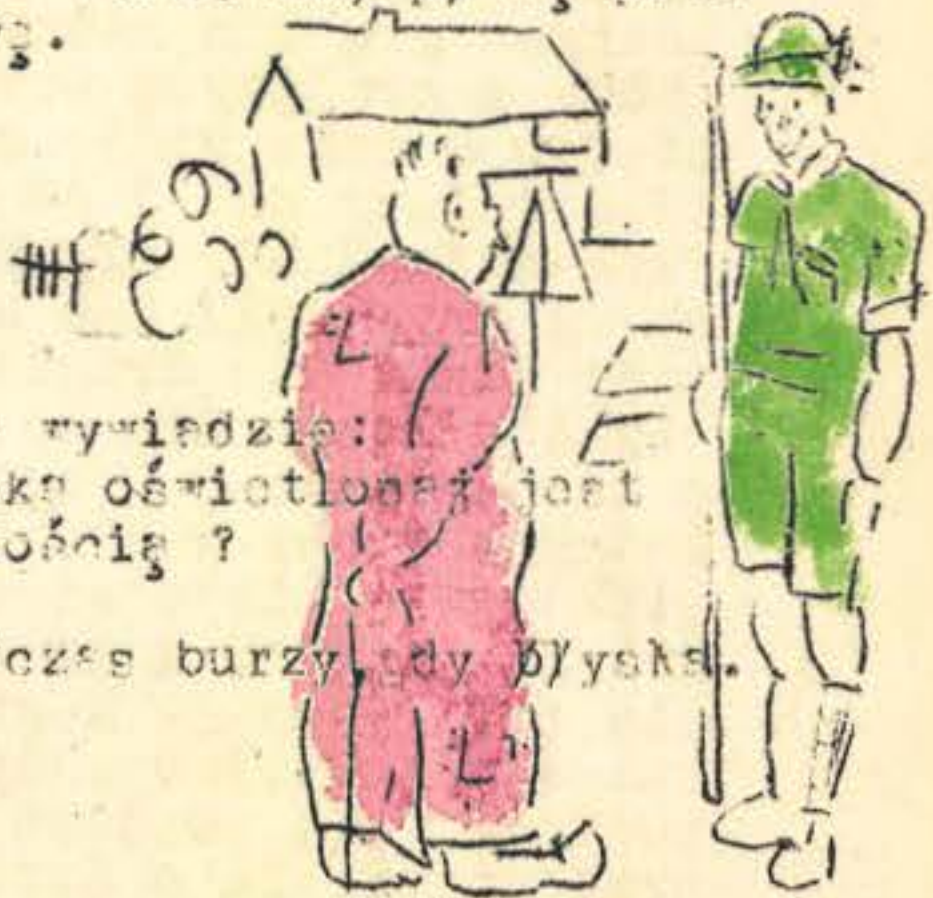 wywiadzie:
ka oświetlonaż jest
ością ?
czas burzy gdy błyska.